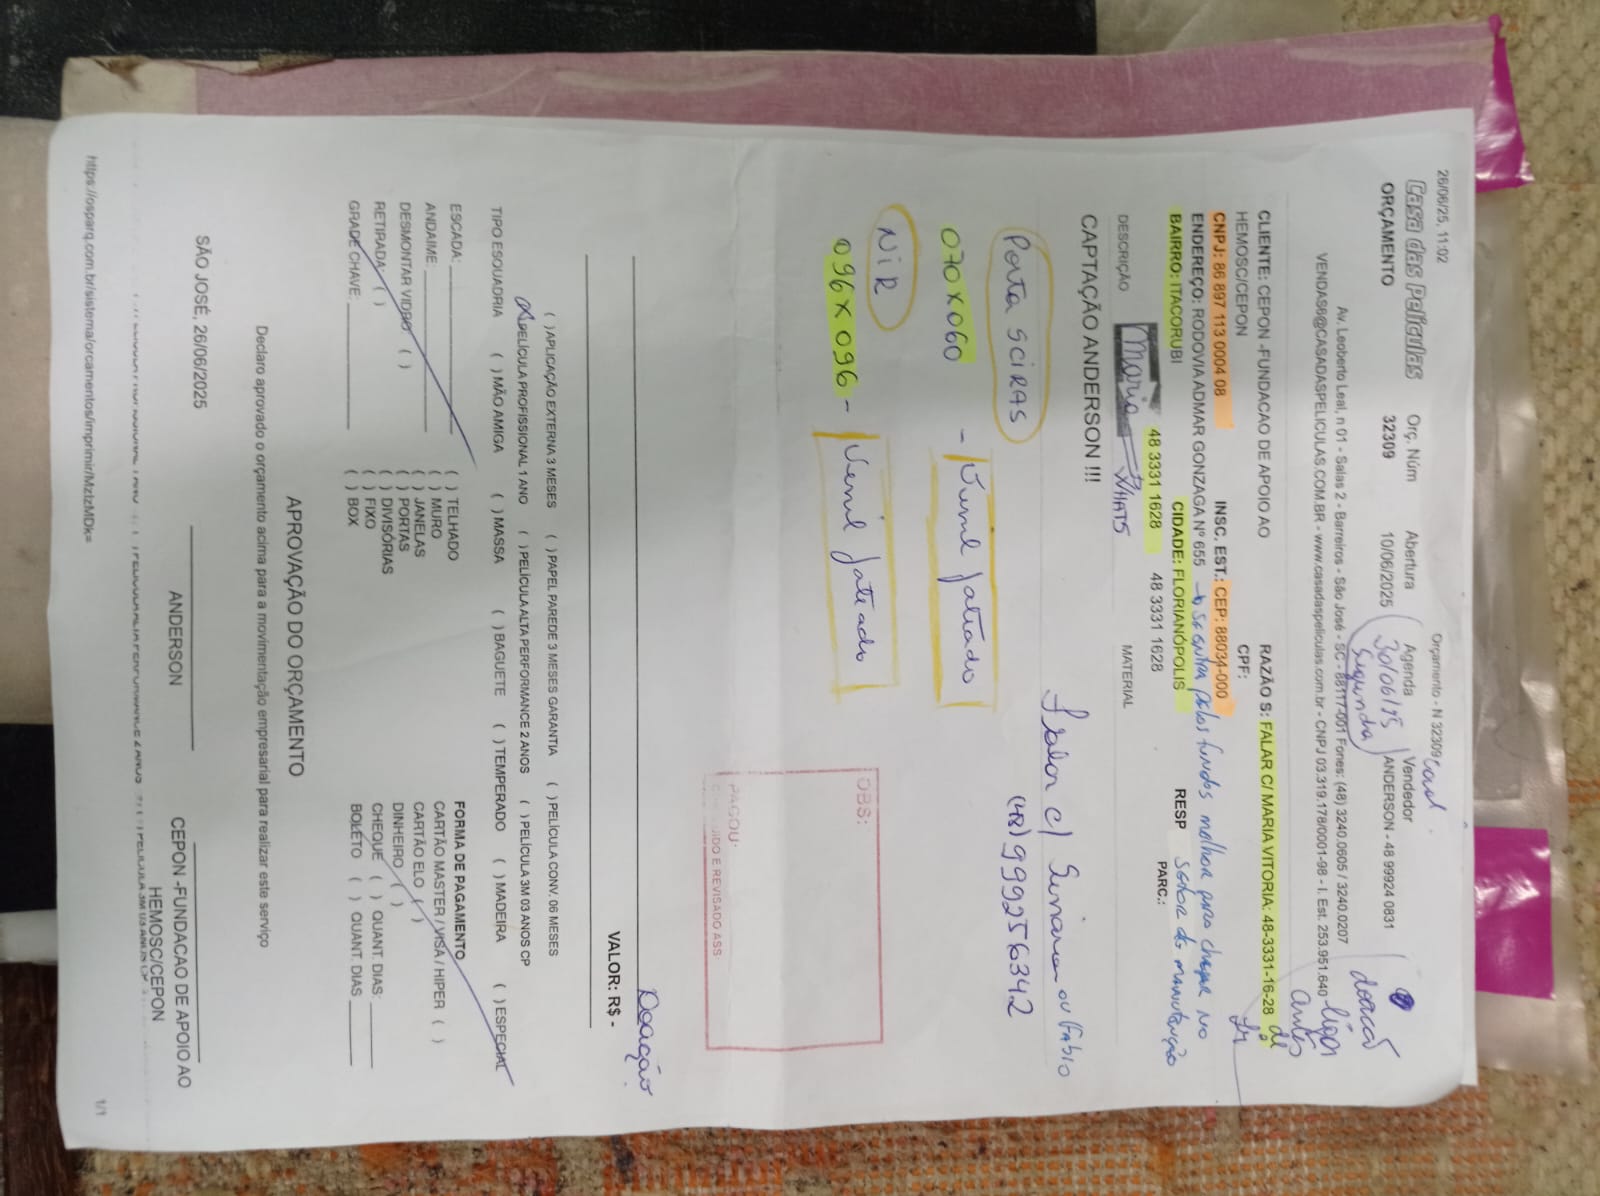 26/06/25, 11:02
Orçamento - N 32309
Casa das Películas
Orç. Núm
Abertura
Agenda
Vendedor
ORÇAMENTO
32309
10/06/2025
30/06/25
Segunda
ANDERSON - 48 99924 0831
doação
ligar
antes
de
Av. Leoberto Leal, n 01 - Salas 2 - Barreiros - São José - SC - 88117-001 Fones: (48) 3240.0605 / 3240.0207
VENDAS6@CASADASPELICULAS.COM.BR - www.casadaspeliculas.com.br - CNPJ 03.319.178/0001-98 - I. Est. 253.951.640
CLIENTE: CEPON -FUNDACAO DE APOIO AO
HEMOSC/CEPON
RAZÃO S: FALAR C/ MARIA VITORIA: 48-3331-16-28
CPF:
CNPJ: 86 897 113 0004 08
INSC. EST.: CEP: 88034-000
ENDEREÇO: RODOVIA ADMAR GONZAGA Nº 655 → entra pelos fundos melhor para chegar no
setor de manutenção
BAIRRO: ITACORUBI
CIDADE: FLORIANÓPOLIS
RESP
48 3331 1628
48 3331 1628
PARC.:
Maria → WHATS
DESCRIÇÃO
MATERIAL
CAPTAÇÃO ANDERSON !!!
Falar c/ ou FABIO
(48) 999256342
Porta SCIRAS
070 x 060 - Vinil Jateado
NiR
096 x 096 - Vinil Jateado
OBS:
PAGOU:
IDO E REVISADO ASS
Doação
VALOR: R$ -
( )APLICAÇÃO EXTERNA 3 MESES ( ) PAPEL PAREDE 3 MESES GARANTIA ( ) PELÍCULA CONV. 06 MESES
(X)PELÍCULA PROFISSIONAL 1 ANO ( ) PELÍCULA ALTA PERFORMANCE 2 ANOS ( ) PELÍCULA 3M 03 ANOS CP
TIPO ESQUADRIA ( ) MÃO AMIGA ( ) MASSA ( ) BAGUETE ( ) TEMPERADO ( ) MADEIRA ( ) ESPECIAL
ESCADA:
( ) TELHADO
FORMA DE PAGAMENTO
ANDAIME:
( ) MURO
CARTÃO MASTER / VISA / HIPER ( )
( ) JANELAS
CARTÃO ELO ( )
DESMONTAR VIDRO ( )
( ) PORTAS
DINHEIRO ( )
RETIRADA: ( )
( ) DIVISÓRIAS
CHEQUE ( ) QUANT. DIAS:
( ) FIXO
GRADE CHAVE:
( ) BOX
BOLETO ( ) QUANT. DIAS
APROVAÇÃO DO ORÇAMENTO
Declaro aprovado o orçamento acima para a movimentação empresarial para realizar este serviço
SÃO JOSÉ, 26/06/2025
ANDERSON
CEPON -FUNDACAO DE APOIO AO
HEMOSC/CEPON
https://osparq.com.br/sistema/orcamentos/imprimir/MzIzMDk=
1/1